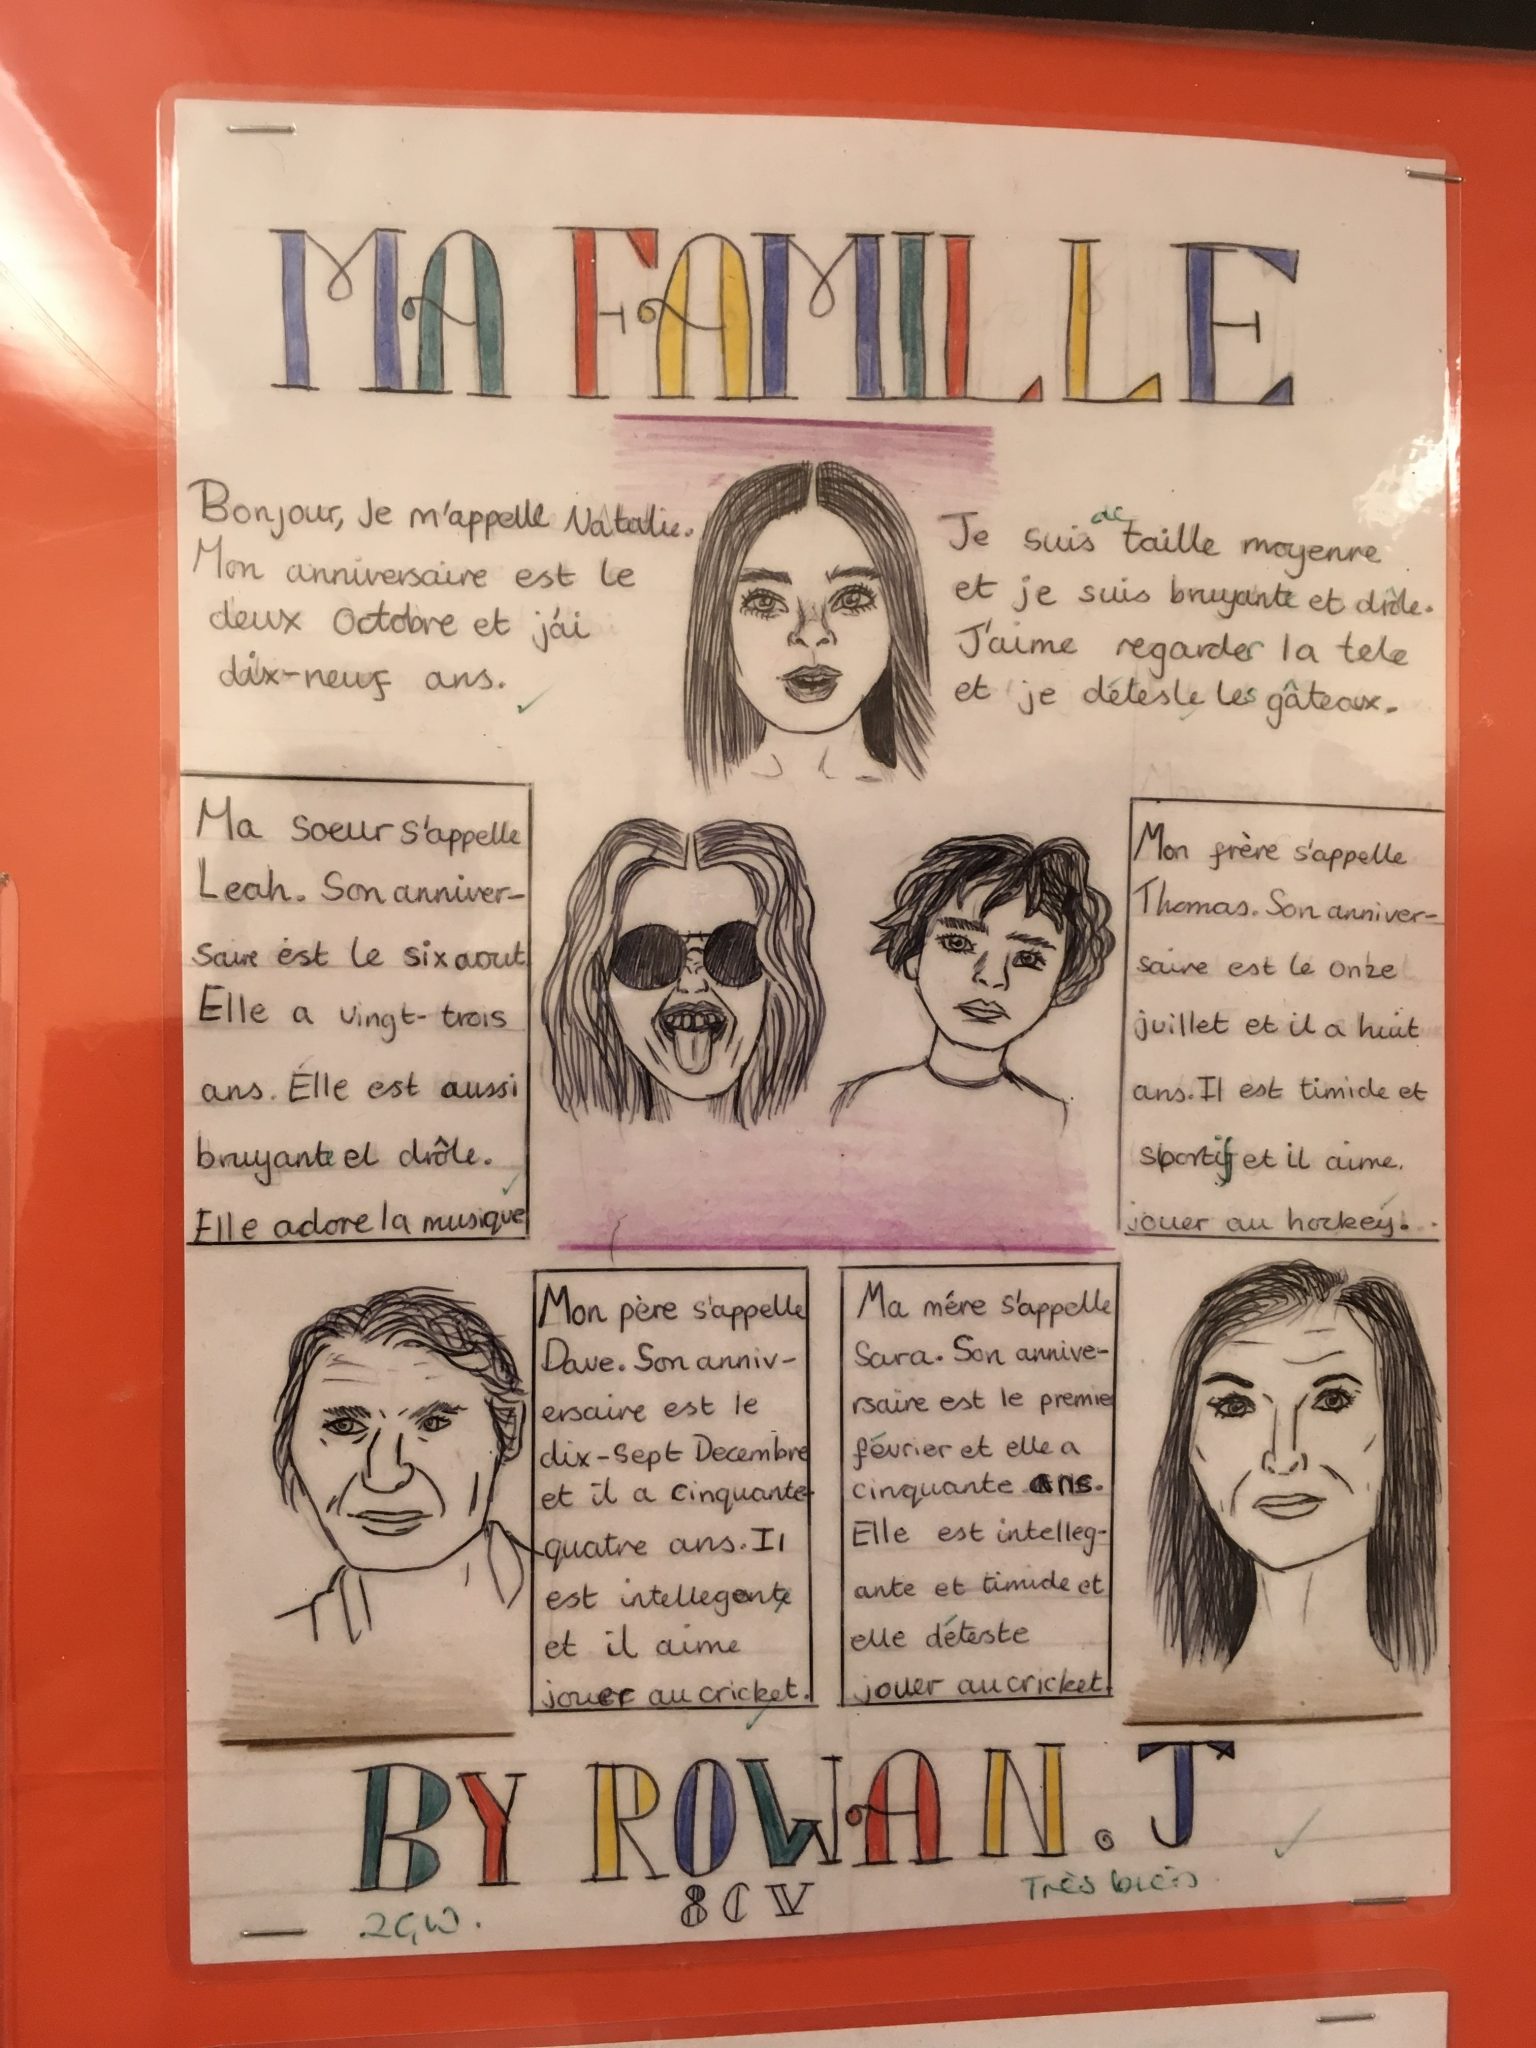 MA FAMILLE
Bonjour, Je m'appelle Natalie.
Mon anniversaire est le
deux Octobre et j'ai
dix-neuf ans.
Je suis de taille moyenne
et je suis bruyante et drôle.
J'aime regarder la tele
et je déteste les gâteaux.
Ma soeur s'appelle
Leah. Son anniver-
saire est le six aout
Elle a vingt-trois
ans. Elle est aussi
bruyante et drôle.
Elle adore la musique
Mon frère s'appelle
Thomas. Son anniver-
saire est le onze
juillet et il a huit
ans. Il est timide et
sportif et il aime.
jouer au hockey...
Mon père s'appelle
Dave. Son anniv-
ersaire est le
dix-sept Decembre
et il a cinquante-
quatre ans. Il
est intellegente
et il aime
jouer au cricket.
Ma mére s'appelle
Sara. Son annive-
rsaire est le premie
février et elle a
cinquante ans.
Elle est intelleg-
ante et timide et
elle déteste
jouer au cricket.
BY ROWAN.J
8CV
Très bien.